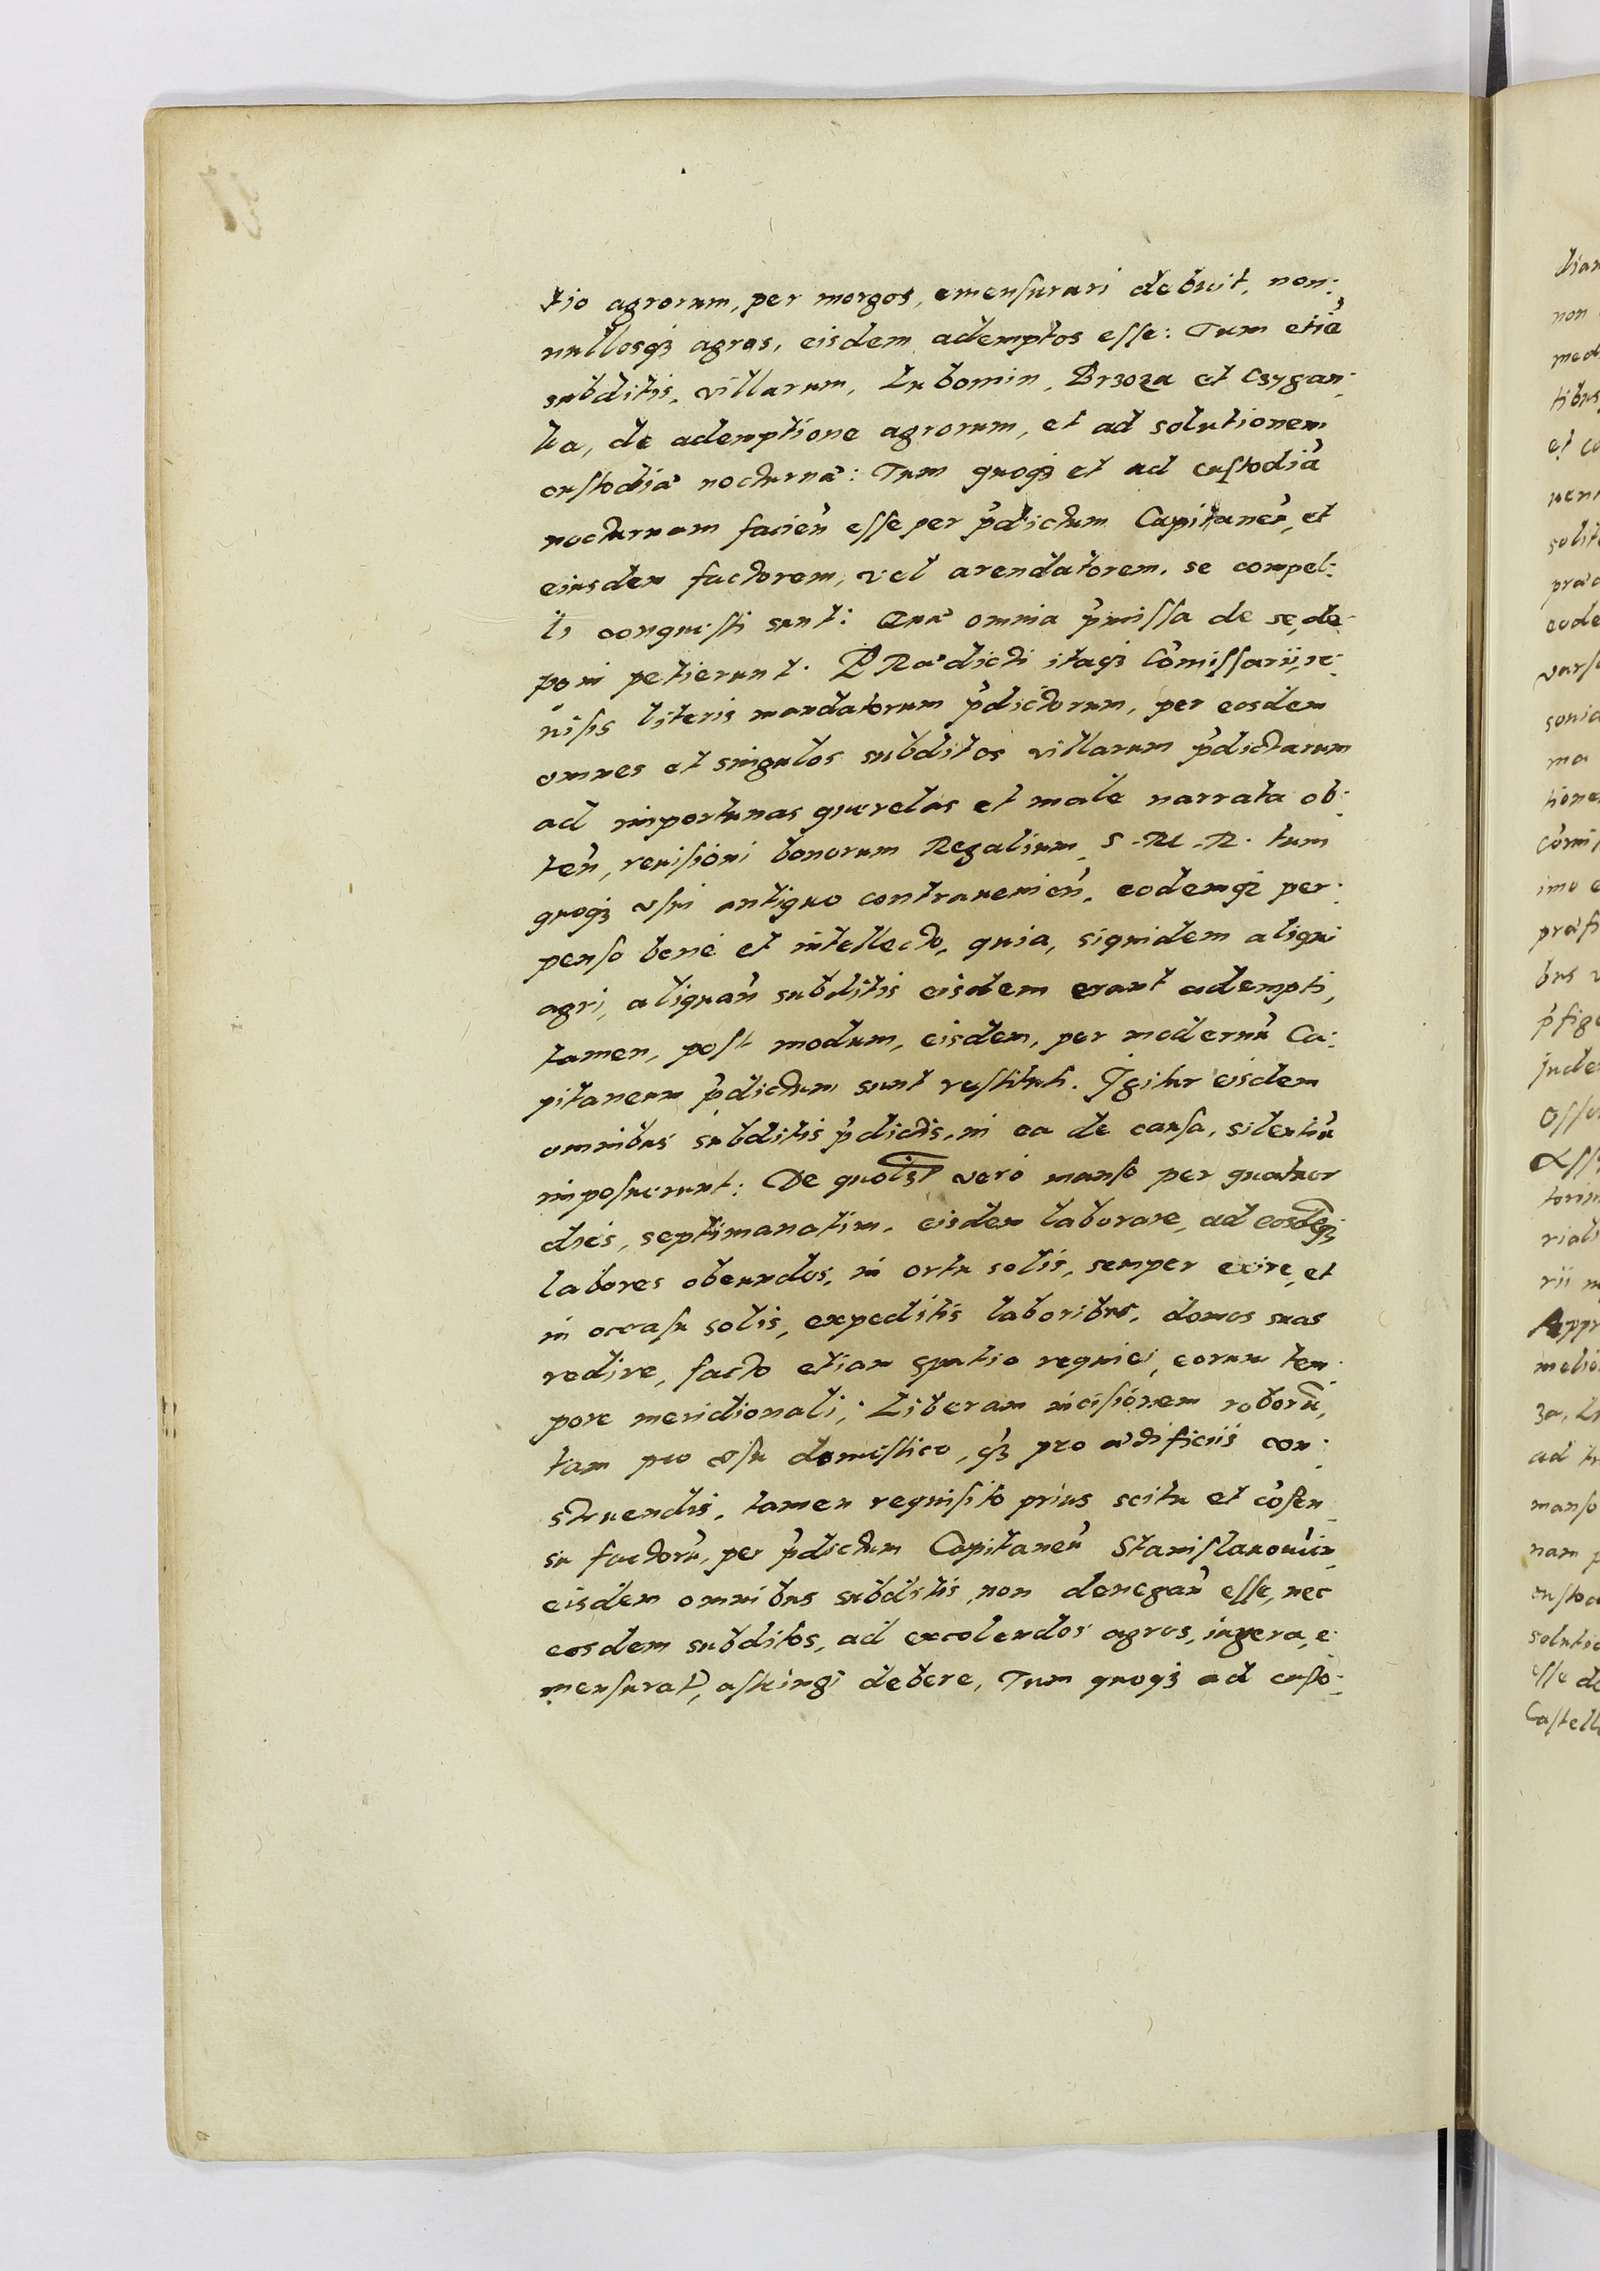 tio agrorum, per morgos, emensurari debuit, non:
nullosq3 agros, eisdem ademptos esse: Tum etiã
subditis, villarum, Lubomin, Brzoza et Czygan:
ka, de ademptione agrorum, et ad solutionem
custodiã nocturnã: Tum quoq3 et ad custodiã
nocturnam facien̄ esse per p̃dictum Capitaneũ, et
eiusdem factorem, vel arendatorem, se compel:
li conquesti sunt: Quæ omnia p̃missa de se, de:
poni petierunt. PRædicti itaq3 Cõmissarii, re:
uisis literis mandatorum p̃dictorum, per eosdem
omnes et singulos subditos villarum p̃dictarum
ad importunas querelas et male narrata ob:
ten̄, reuisioni bonorum Regalium, S. M. R. tum
quoq3 vsui antiquo contrauenien̄, eodemq3 per:
penso bene et intellecto, quia, siquidem aliqui
agri, aliquan̄ subditis eisdem erant adempti,
tamen, post modum, eisdem, per modernũ Ca:
pitaneum p̃dictum sunt restituti. Igitur eisdem
omnibus subditis p̃dictis, in ea de causa, silentiũ
imposuerunt: De quolȝt vero manso per quatuor
dies, septimanatim, eisdem laborare, ad eosdẽq3
labores obeundos, in ortu solis, semper exire, et
in occasu solis, expeditis laboribus, domos suas
redire, facto etiam spatio requiei, eorum tem:
pore meridionali; Liberam incisionem roborũ,
tam pro vsu domestico, q̃3 pro ædificiis con:
struendis, tamen requisito prius scitu et cõsen
su factorũ, per p̃dictum Capitaneũ Stanislauouien̄,
eisdem omnibus subditis, non denegan̄ esse, nec
eosdem subditos, ad excolendos agros, iugera, e:
mensurat, astringi debere, Tum quoq3 ad custo: